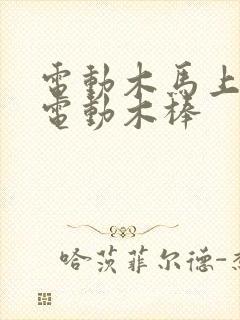 電動木馬上
電動木棒
哈茨菲尔德-杰